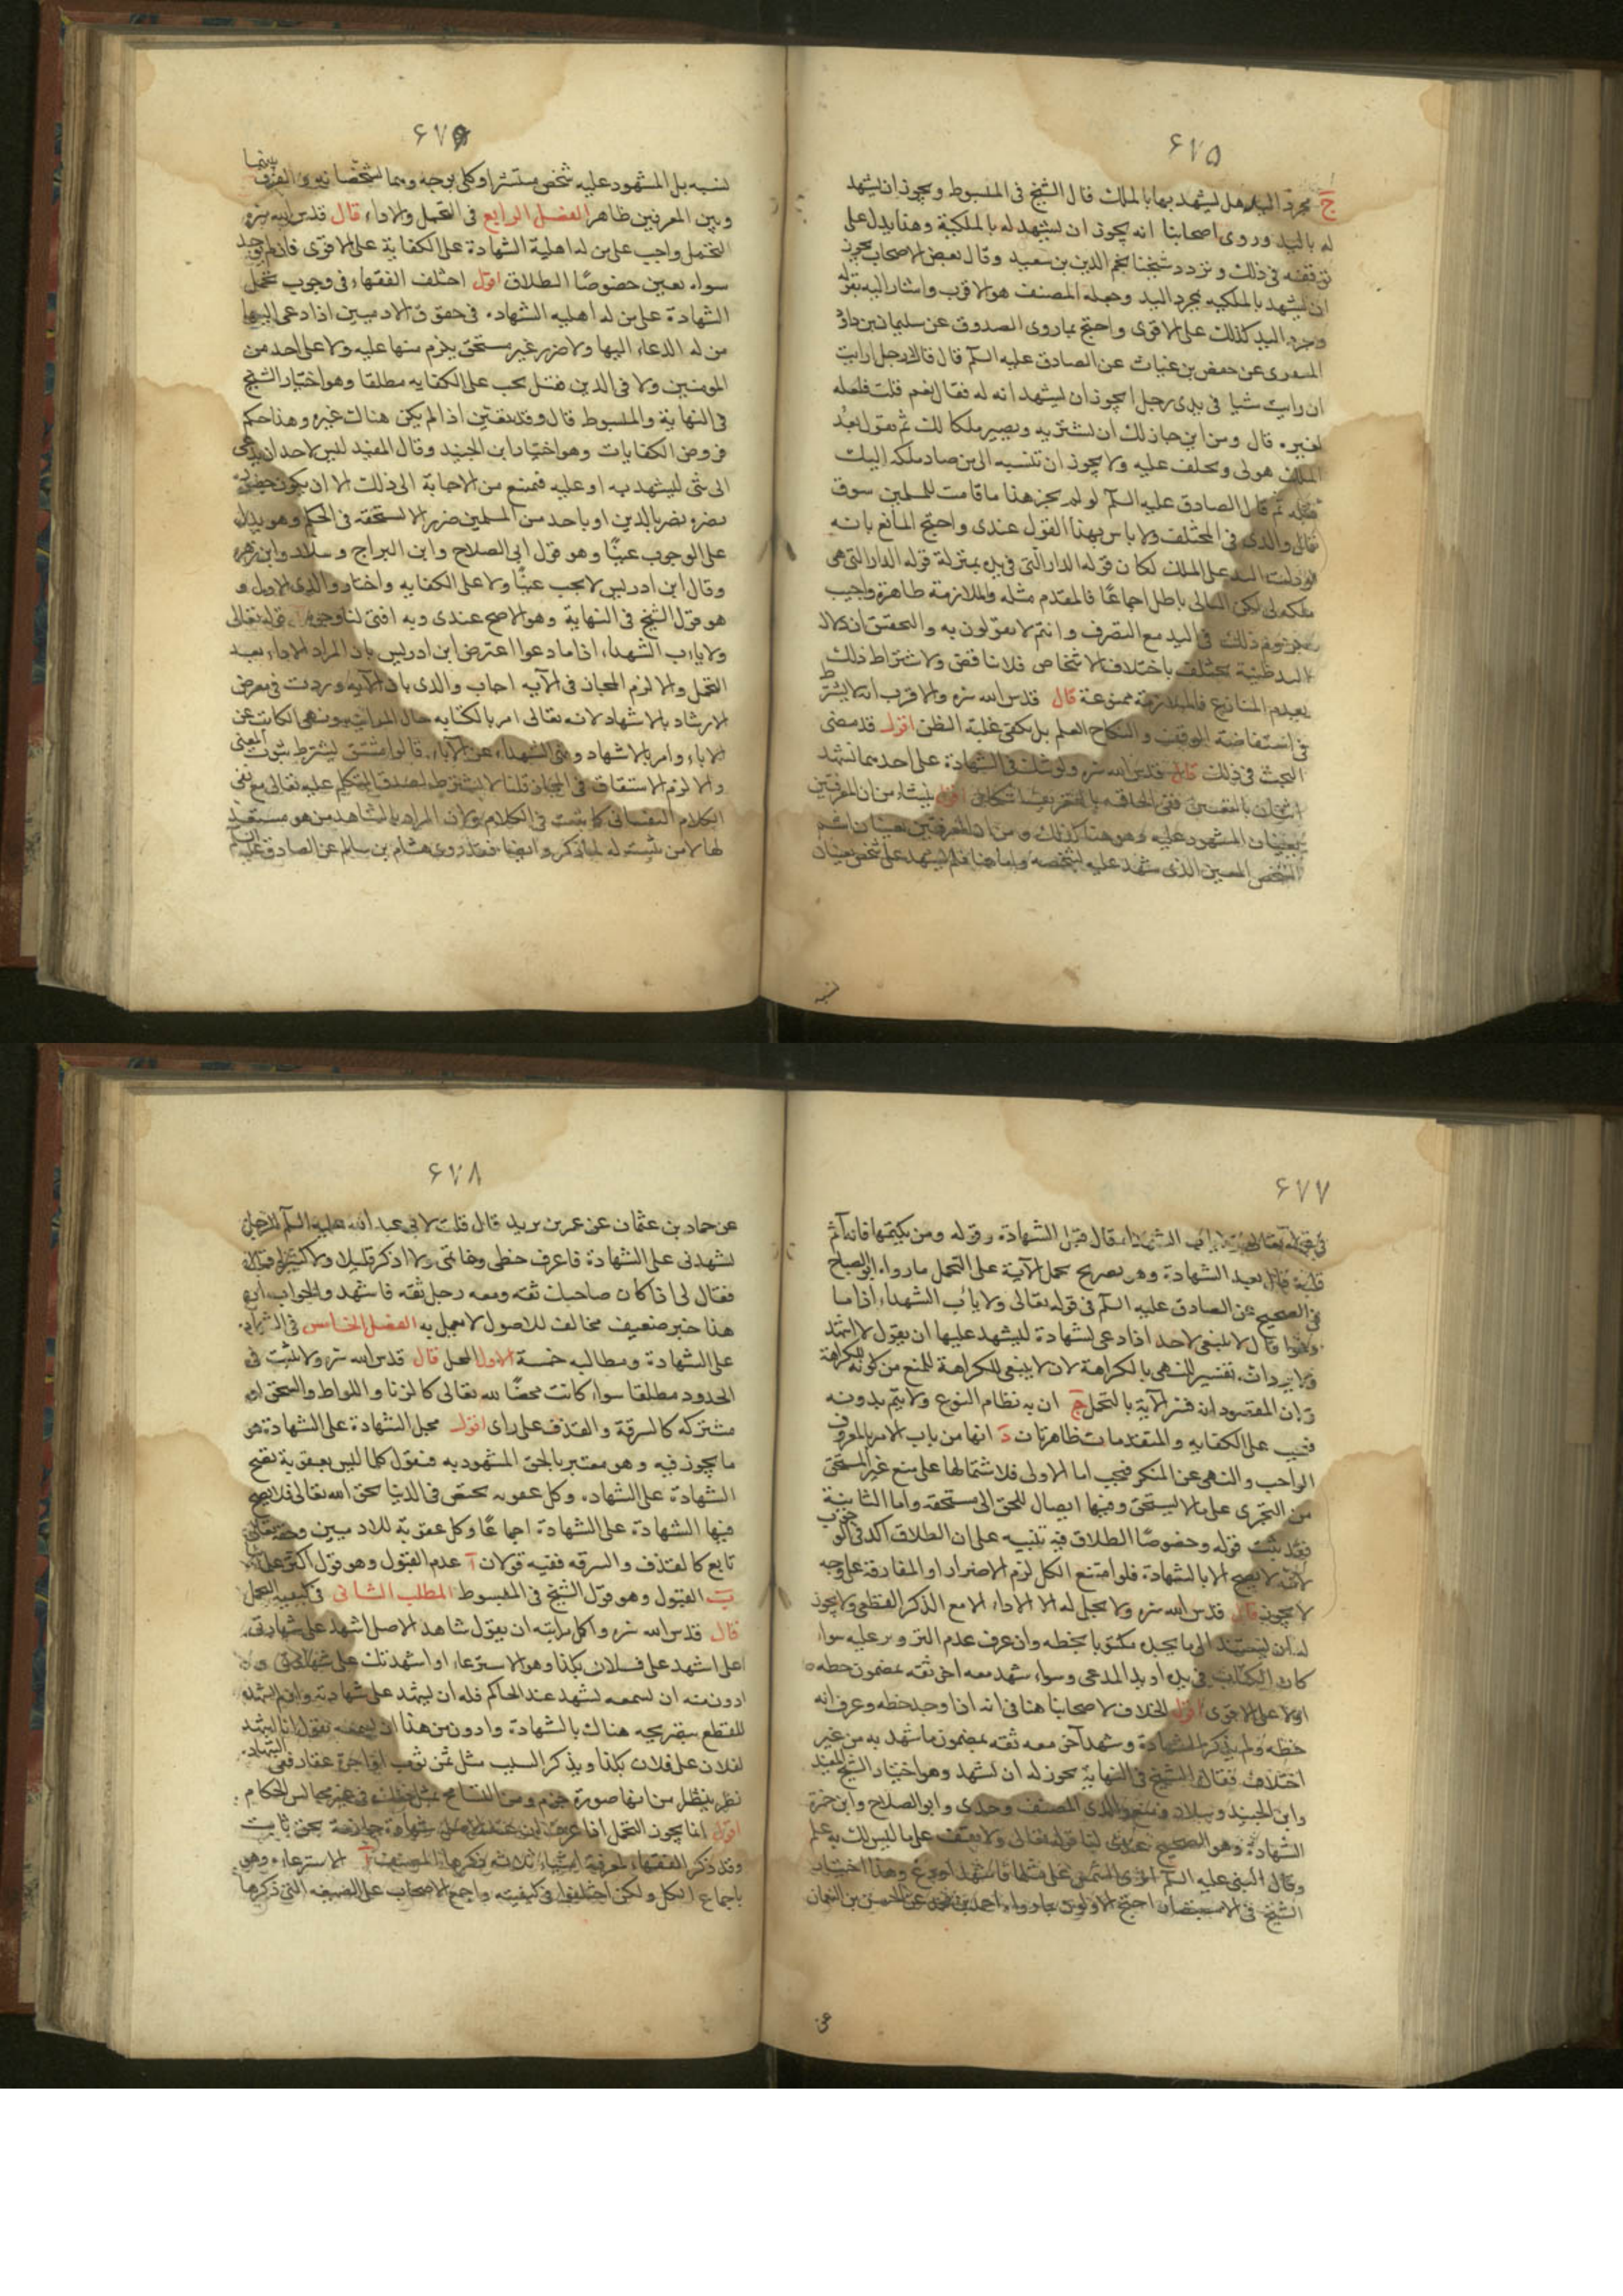 ۶۷۵
ج مجرد اليد هل يشهد بها بالملك قال الشيخ فى المبسوط ويجوز ان يشهد
له باليد وروى اصحابنا انه يجوز ان يشهد له بالملكية وهذا يدل على
توقفه فى ذلك وتردد شيخنا نجم الدين بن سعيد وقال بعض الاصحاب يجوز
ان يشهد بالملكيه بمجرد اليد وجعله المصنف هو الاقرب واشار اليه بقوله
ومجرد اليد كذلك على الاقوى واحتج بما روى الصدوق عن سليمان بن داود
المنقرى عن حفص بن غياث عن الصادق عليه السلم قال قال له رجل ارايت
ان رايت شيا فى يدى رجل ايجوز ان يشهد انه له فقال نعم قلت فلعله
لغيره قال ومن اين جاز لك ان تشتريه ويصير ملكا لك ثم تقول بعد
الملك هو لى وتحلف عليه ولا يجوز ان تنسبه الى من صار ملكه اليك
قبله ثم قال الصادق عليه السلم لو لم يجز هذا ما قامت للمسلمين سوق
قال والدى فى المختلف ولا باس بهذا القول عندى واحتج المانع بانه
لو دلت اليد على الملك لكان قوله الدار التى فى يده بمنزلة قوله الدار التى هى
ملكه لى لكن التالى باطل اجماعًا فالمقدم مثله والملازمة ظاهرة واجيب
ذلك فى اليد مع التصرف وانتم لا تقولون به والتحقيق ان دلالة
اليد ظنية تختلف باختلاف الاشخاص فلا تناقض ولاشتراط ذلك
بعدم المنازع فالملازمة ممنوعة قال قدس الله سره والاقرب انه لا يشترط
فى استفاضة الوقف والنكاح العلم بل يكفى غلبة الظن اقول قد مضى
البحث فى ذلك قال قدس الله سره ولو شك فى الشهادة على احدهما تشهد
اثنان بالتعيين ففى الحاقه بالتعريف اشكال اقول ينشاء من ان المعرفين
يعينان المشهود عليه وهو هنا كذلك ومن ان المعرفين يعينان اسم
الشخص المعين الذى شهد عليه لشخصه واما هنا فلم يشهد على شخص يعينان
لنسبه
۶۷۶
لنسبه بل المشهود عليه شخص منتشر او كلى بوجه وهما لشخصانه والفرق بينهما
وبين المعرفين ظاهر الفصل الرابع فى التحمل والاداء قال قدس الله سره
التحمل واجب على من له اهلية الشهادة على الكفاية على الاقوى فان لم يوجد
سواه تعين خصوصًا الطلاق اقول اختلف الفقهاء فى وجوب تحمل
الشهادة على من له اهليه الشهاده فى حقوق الادميين اذا دعى اليها
من له الدعاء اليها ولا ضرر غير مستحق يلزم منها عليه ولا على احد من
المومنين ولا فى الدين فقيل يجب على الكفايه مطلقا وهو اختيار الشيخ
فى النهاية والمبسوط قال وقد يتعين اذا لم يكن هناك غيره وهذا حكم
فروض الكفايات وهو اختيار ابن الجنيد وقال المفيد ليس لاحد ان يدعى
الى شى ليشهد به او عليه فيمتنع من الاجابة الى ذلك الا ان يكون حضوره
يضره يضر بالدين او باحد من المسلمين ضررا لا يستحقه فى الحكم وهو يدل
على الوجوب عينًا وهو قول ابى الصلاح وابن البراج وسلار وابن زهره
وقال ابن ادريس لا يجب عينًا ولا على الكفايه واختار والدى الاول و
هو قول الشيخ فى النهاية وهو الاصح عندى وبه افتى لنا وجوه ا قوله تعالى
ولا ياب الشهداء اذا ما دعوا اعترض ابن ادريس بان المراد الاداء بعد
التحمل والا لزم المجاز فى الآيه اجاب والدى بان الآيه وردت فى معرض
الارشاد بالاشهاد لانه تعالى امر بالكتابه حال المداينه ونهى الكاتب عن
الاباء وامر بالاشهاد ونهى الشهداء عن الاباء قالوا مشتق ليشترط ثبوت المعنى
والا لزم الاشتقاق فى المجاز قلنا لا يشترط لصدق المتكلم عليه تعالى مع نفى
الكلام النفسانى كما ثبت فى الكلام ولان المراد بالشاهد من هو مستعد
لها لا من ثبتت له لما ذكر وايضا فقد روى هشام بن سالم عن الصادق عليه السلم
۶۷۷
فى قوله تعالى ولا ياب الشهداء قال قبل الشهادة وقوله ومن يكتمها فانه آثم
قلبه قال بعد الشهادة وهو تصريح بحمل الآية على التحمل ما رواه ابو الصباح
فى الصحيح عن الصادق عليه السلم فى قوله تعالى ولا ياب الشهداء اذا ما
دعوا قال لا ينبغى لاحد اذا دعى لشهادة ليشهد عليها ان يقول لا اشهد
تفسير النهى بالكراهة لان لا ينبغى للكراهة للمنع من كونه للكراهة
وان المقصود انه فسر الآية بالتحمل ج ان به نظام النوع ولا يتم بدونه
فيجب على الكفايه والمتقدمات ظاهرتان د انها من باب الامر بالمعروف
الواجب والنهى عن المنكر فيجب اما الاولى فلاشتمالها على منع غير المستحق
من التجرى على ما لا يستحق وفيها ايصال للحق الى مستحقه واما الثانية
فقد ثبت قوله وخصوصًا الطلاق فيه تنبيه على ان الطلاق اكد فى الوجوب
لانه لا يصح الا بالشهادة فلو امتنع الكل لزم الاضرار او المفارقة على وجه
لا يجوز قال قدس الله سره ولا يحل له الا الاداء الا مع الذكر القطعى ولا يجوز
له ان يستند الى ما يجده مكتوبا بخطه وان عرف عدم التزوير عليه سواء
كان الكتاب فى يده او يد المدعى وسواء شهد معه اخر ثقه بمضمون خطه
اولا على الاقوى اقول الخلاف لاصحابنا هنا فى انه اذا وجد خطه وعرف انه
خطه ولم يذكر الشهادة وشهد آخر معه ثقه بمضمون ما شهد به من غير
اختلاف فقال الشيخ فى النهاية يجوز له ان يشهد وهو اختيار الشيخ المفيد
وابن الجنيد وسلار ومنع والدى المصنف وجدى وابو الصلاح وابن حمزة
الشهادة وهو الصحيح عندى لنا قوله تعالى ولا تقف على ما ليس لك به علم
وقال النبى عليه السلم ارى الشمس على مثلها فاشهد او دع وهذا اختيار
الشيخ فى الاستبصار احتج الاولون بما رواه احمد بن محمد عن الحسن بن النعمان
عن
۶۷۸
عن حماد بن عثمان عن عمر بن يزيد قال قلت لابى عبد الله عليه السلم الرجل
يشهدنى على الشهادة فاعرف خطى وخاتمى ولا اذكر قليلا ولا كثيرا فقال
فقال لى اذا كان صاحبك ثقه ومعه رجل ثقه فاشهد والجواب ان
هذا خبر ضعيف مخالف للاصول لا يعمل به الفصل الخامس فى الشهادة
على الشهادة ومطالبه خمسة الاول المحل قال قدس الله سره ولا تثبت فى
الحدود مطلقا سواء كانت محضًا لله تعالى كالزنا واللواط والسحق او
مشتركه كالسرقة والقذف على راى اقول محل الشهادة على الشهادة هو
ما يجوز فيه وهو معتبر بالحق المشهود به فنقول كلما ليس بعقوبة تصح
الشهادة على الشهاده وكل عقوبه تختص فى الدنيا بحق الله تعالى فلا يصح
فيها الشهادة على الشهادة اجماعًا وكل عقوبة للادميين وحقه تعالى
تابع كالقذف والسرقه ففيه قولان آ عدم القبول وهو قول اكثر علمائنا
ب القبول وهو قول الشيخ فى المبسوط المطلب الثانى فى كيفيه التحمل
قال قدس الله سره واكل مراتبه ان يقول شاهد الاصل اشهد على شهادتى
اعلى اشهد على فلان بكذا وهو الاسترعاء او اشهدتك على شهادتى و
ادون منه ان يسمعه يشهد عند الحاكم فله ان يشهد على شهادته وان لم يشهده
للقطع بتصريحه هناك بالشهادة وادون من هذا ان يسمعه يقول انا اشهد
لفلان على فلان بكذا ويذكر السبب مثل ثمن ثوب او اجرة عقار ففى الشهاده
نظر ينظر من انها صورة جزم ومن التسامح بمثل ذلك فى غير مجالس الحكام
اقول انما يجوز التحمل اذا عرف ان عند الاصل شهادة جازمة بحق ثابت
وقد ذكر الفقهاء لمعرفة اشياء ثلاثه ذكرها المصنف آ الاسترعاء وهى
باجماع الكل ولكن اختلفوا فى كيفيته واجمع الاصحاب على الصيغه التى ذكرها